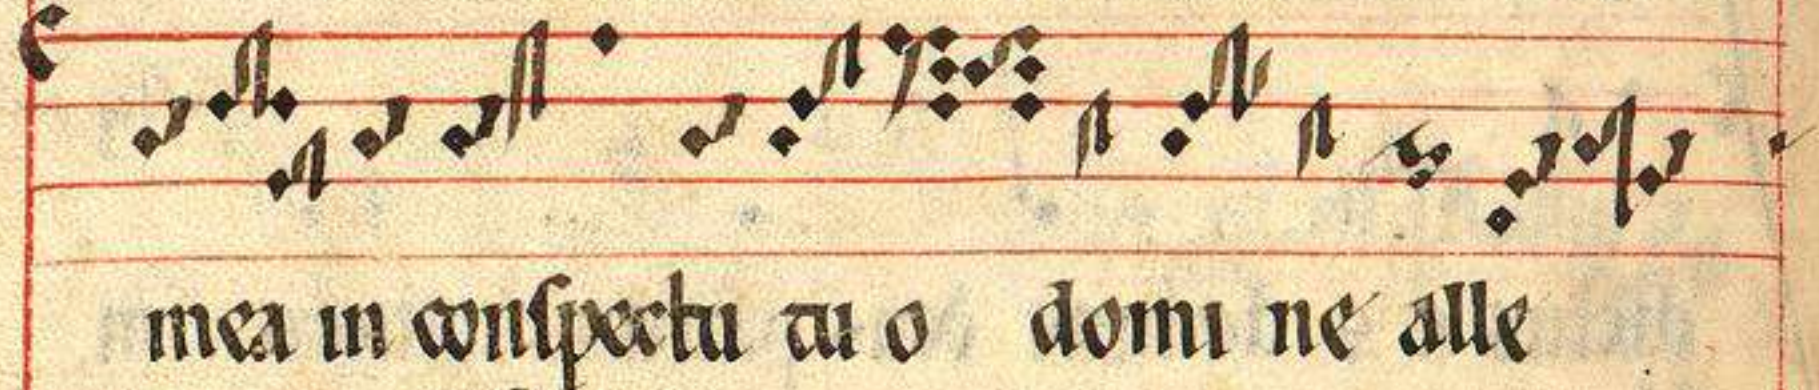 mea in conspectu tu o domi ne alle